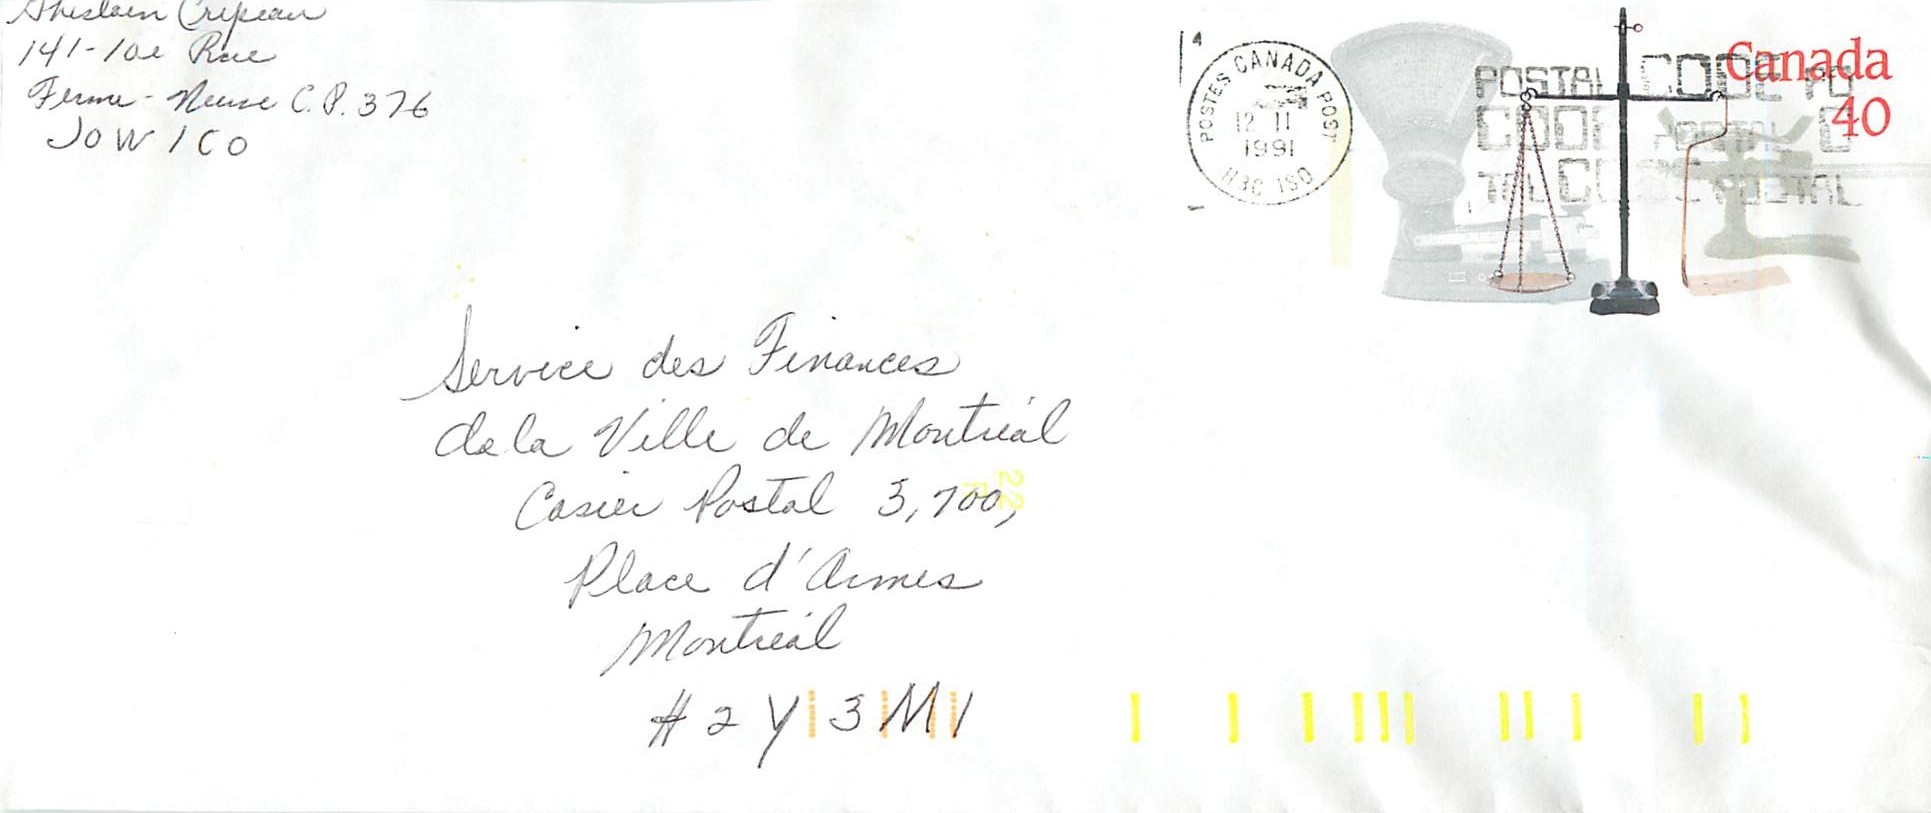 Ghislain Crépeau
141-10e Rue
Ferme-Neuve C.P. 376
J0W 1C0
POSTES CANADA POST
12 11
1991
H3C 1S0
Canada
40
POSTAL CODE PO
CODE POSTAL
CODE POSTAL
Service des Finances
de la Ville de Montréal
Casier Postal 3,700,
Place d'Armes
Montréal
H2Y 3M1
22